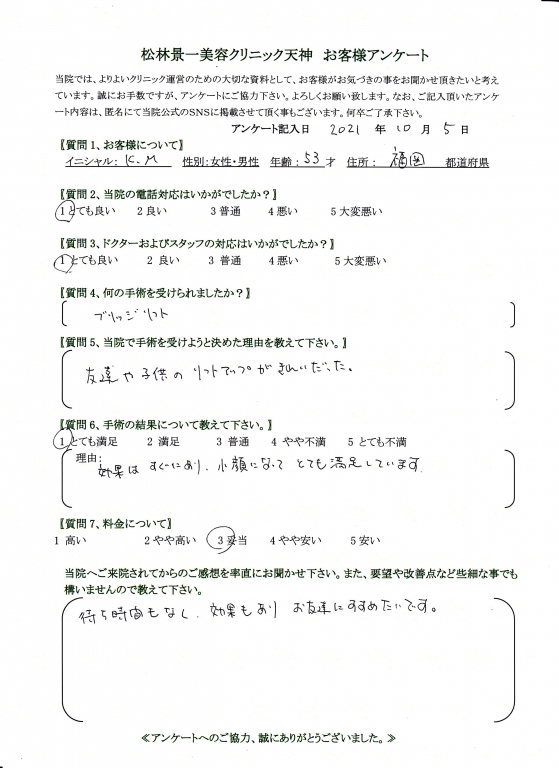 松林景一美容クリニック天神　お客様アンケート
当院では、よりよいクリニック運営のための大切な資料として、お客様がお気づきの事をお聞かせ頂きたいと考え
ています。誠にお手数ですが、アンケートにご協力下さい。よろしくお願い致します。なお、ご記入頂いたアンケ
ート内容は、匿名にて当院公式のSNSに掲載させて頂く事もございます。何卒ご了承下さい。
アンケート記入日　2021　年　10　月　5　日
〖質問1、お客様について〗
イニシャル：K.M　性別：女性・男性　年齢：53才　住所：福岡　都道府県
〖質問2、当院の電話対応はいかがでしたか？〗
1とても良い　2良い　3普通　4悪い　5大変悪い
〖質問3、ドクターおよびスタッフの対応はいかがでしたか？〗
1とても良い　2 良い　3 普通　4悪い　5大変悪い
〖質問4、何の手術を受けられましたか？〗
ブリッジリフト
〖質問5、当院で手術を受けようと決めた理由を教えて下さい。〗
友達や子供のリフトアップがきれいだった。
〖質問6、手術の結果について教えて下さい。〗
1とても満足　2 満足　3 普通　4 やや不満　5 とても不満
理由：
効果はすぐにあり、小顔になって とても満足しています。
〖質問7、料金について〗
1 高い　2やや高い　3妥当　4やや安い　5安い
当院へご来院されてからのご感想を率直にお聞かせ下さい。また、要望や改善点など些細な事でも
構いませんので教えて下さい。
待ち時間もなし、効果もあり お友達にすすめたいです。
≪アンケートへのご協力、誠にありがとうございました。≫